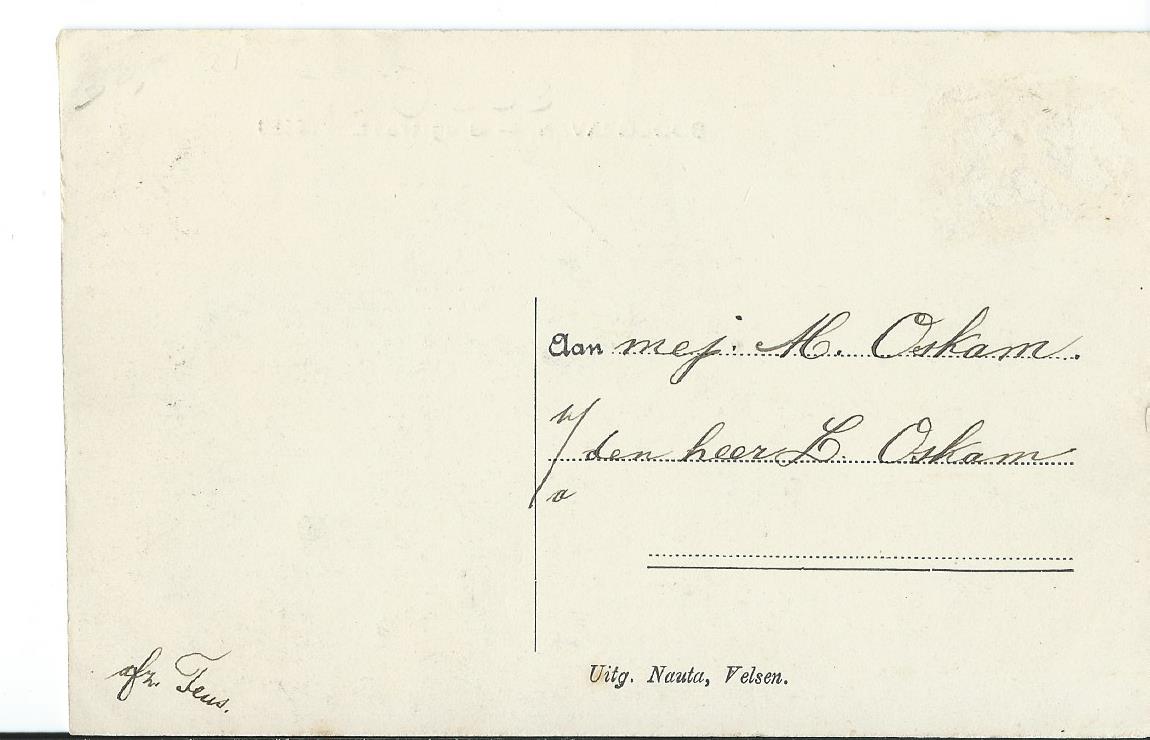 Aan mej. M. Oskam.
b/a den heer L. Oskam
Uitg. Nauta, Velsen.
afz. Teus.